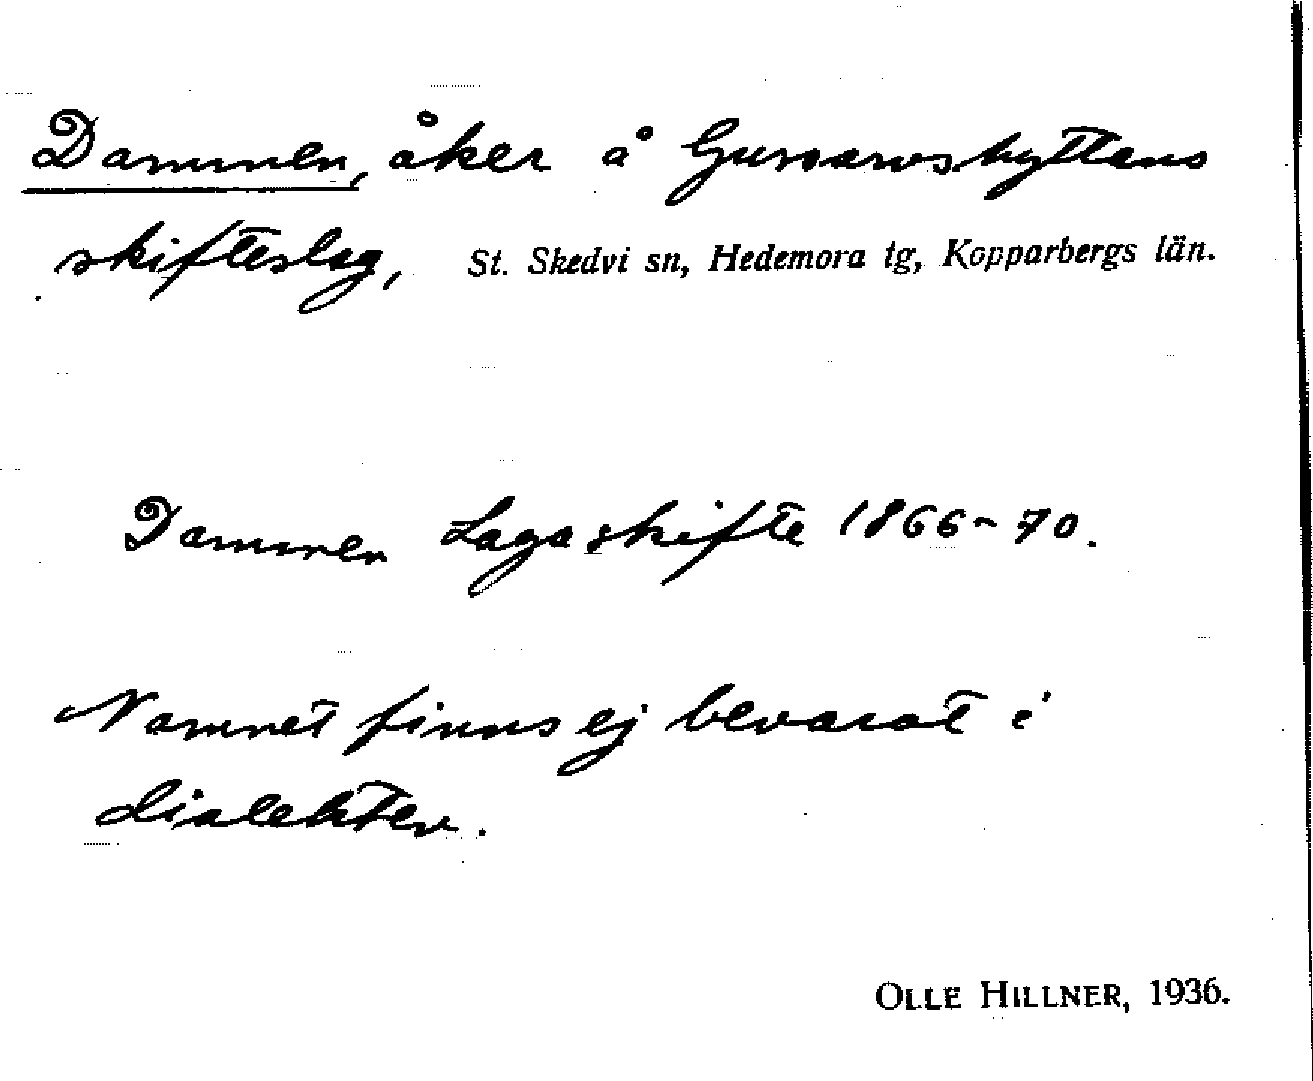 Dammen, åker å Gunnarshyttans
skifteslag, St. Skedvi sn, Hedemora tg, Kopparbergs län.
Dammen Laga skifte 1866-70.
Namnet finns ej bevarat i
dialekten.
OLLE HILLNER, 1936.